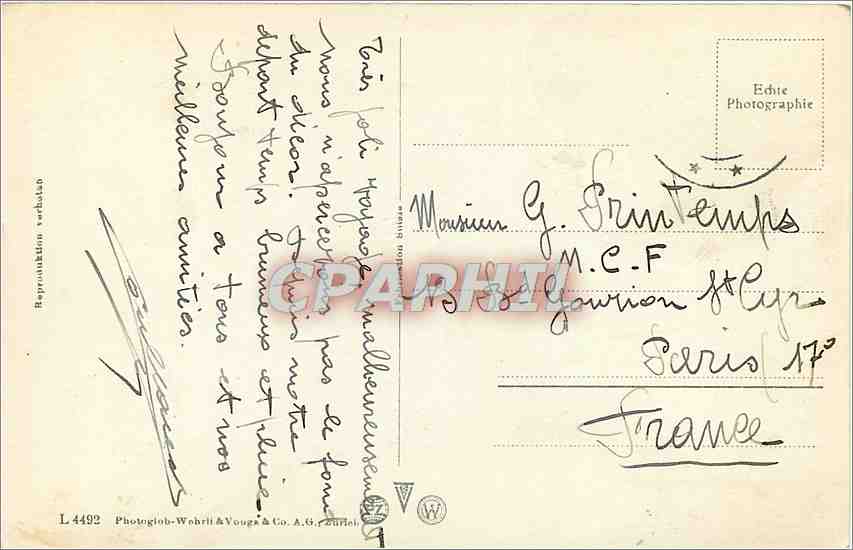 Très joli voyage, malheureusement
nous n'apercevons pas le fond
du décor. Depuis notre
départ temps brumeux et pluie.
Bonjour a tous et nos
meilleures amitiés.
Echte
Photographie
Monsieur G. PrinTemps
M.C.F
Bd Gouvion St Cyr
Paris 17°
France
Reproduktion verboten
L 4492 Photoglob-Wehrli & Vouga & Co. A.G., Zürich
CPARHII